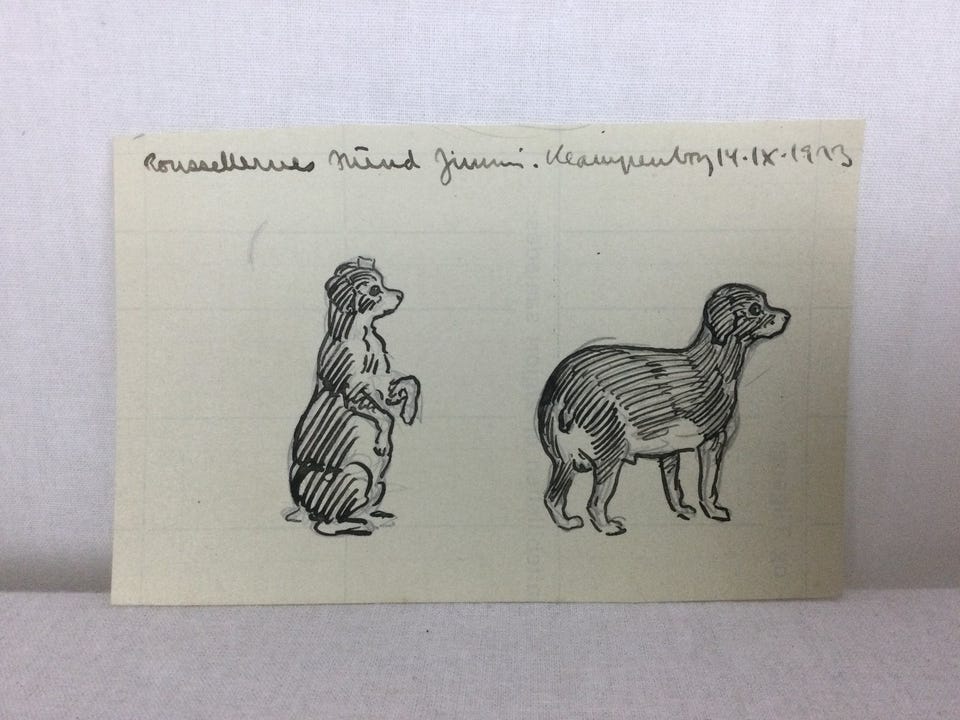 Roussellernes Hund Jimmi. Klampenborg 14·IX·1923